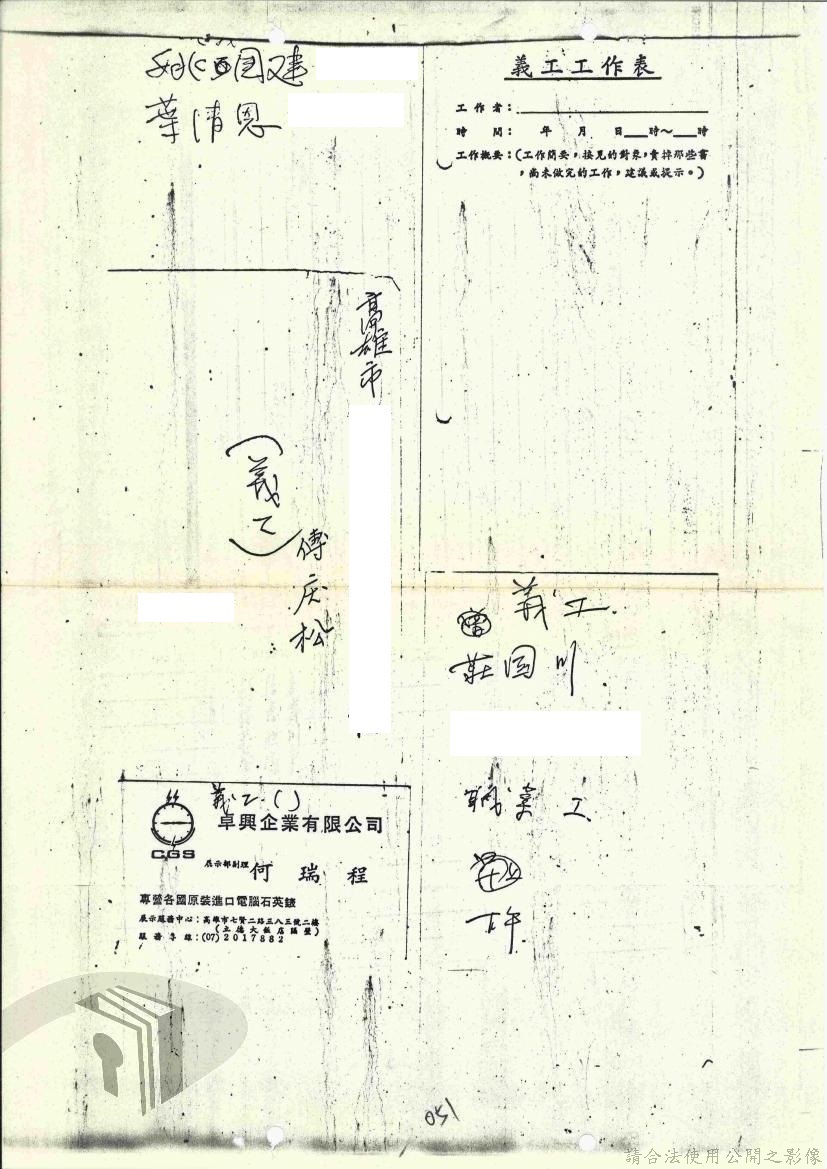 姚国建
葉清恩
義工工作表
工作者:
時間: 年 月 日 時～ 時
工作概要:(工作簡要,接見的對象,賣掉那些書
,尚未做完的工作,建議或提示。)
高雄市
(義工)
傅庆松
義工.
莊国川
職業工
下午
義工.()
CGS
卓興企業有限公司
展示部副理 何瑞程
專營各國原裝進口電腦石英錶
展示服務中心:高雄市七賢二路三八三號二樓
(立德大飯店隔壁)
服務專線:(07)2017882
051
請合法使用公開之影像